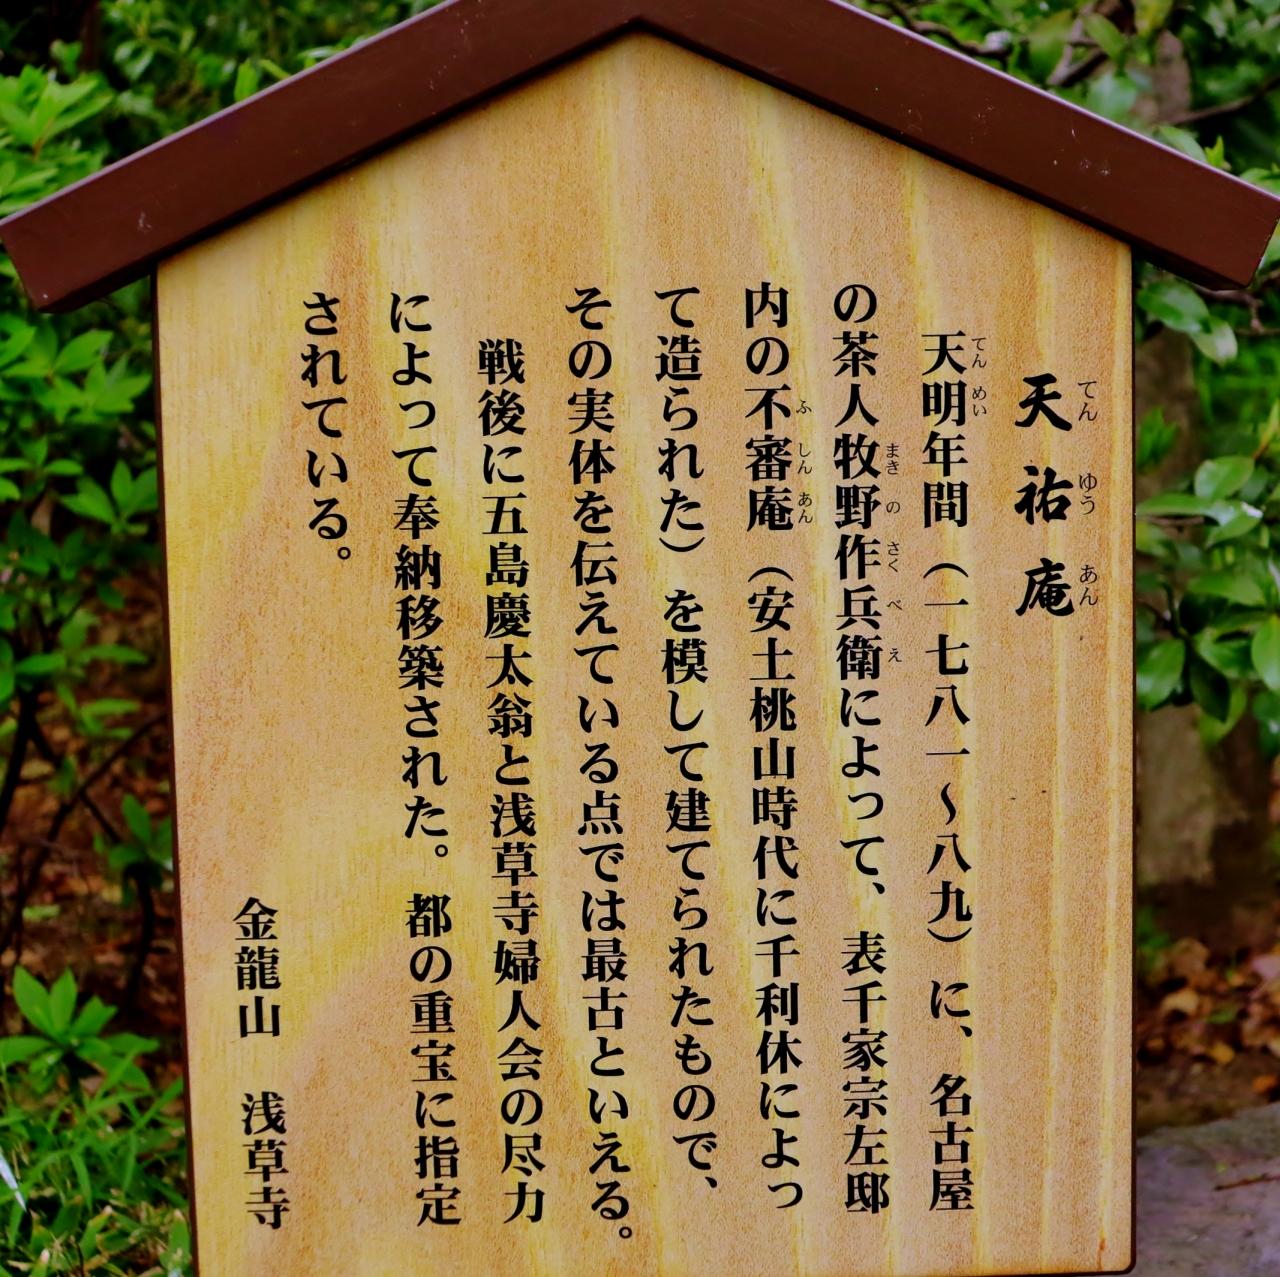 天祐庵
天明年間(一七八一〜八九)に、名古屋
の茶人牧野作兵衛によって、表千家宗左邸
内の不審庵(安土桃山時代に千利休によっ
て造られた)を模して建てられたもので、
その実体を伝えている点では最古といえる。
戦後に五島慶太翁と浅草寺婦人会の尽力
によって奉納移築された。都の重宝に指定
されている。
金龍山 浅草寺
てん ゆう あん
てん めい
まき の さく べ え
ふ しん あん